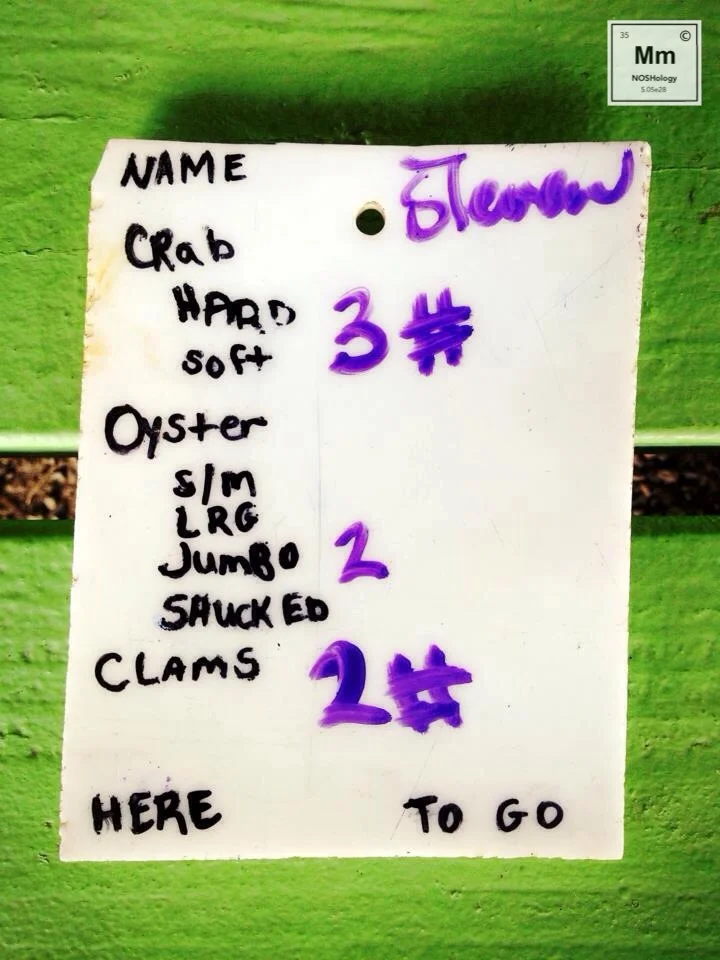 35 ©
Mm
NOSHology
5.05e28
NAME
CRab
HARD 3 #
soft
Oyster
S/M
LRG
JumBO 2
SHUCKED
CLAMS 2 #
HERE TO GO